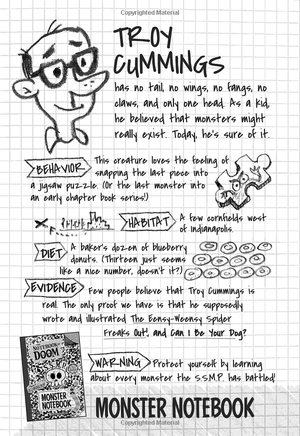 Copyrighted Material
TROY
CUMMINGS
has no tail, no wings, no fangs, no
claws, and only one head. As a kid,
he believed that monsters might
really exist. Today, he's sure of it.
BEHAVIOR This creature loves the feeling of
snapping the last piece into
a jigsaw puzzle. (Or the last monster into
an early chapter book series!)
HABITAT A few cornfields west
of Indianapolis.
DIET A baker's dozen of blueberry
donuts. (Thirteen just seems
like a nice number, doesn't it?)
EVIDENCE Few people believe that Troy Cummings is
real. The only proof we have is that he supposedly
wrote and illustrated The Eensy-Weensy Spider
Freaks Out!, and Can I Be Your Dog?
WARNING Protect yourself by learning
about every monster the S.S.M.P. has battled!
DOOM
MONSTER
NOTEBOOK
MONSTER NOTEBOOK
Copyrighted Material